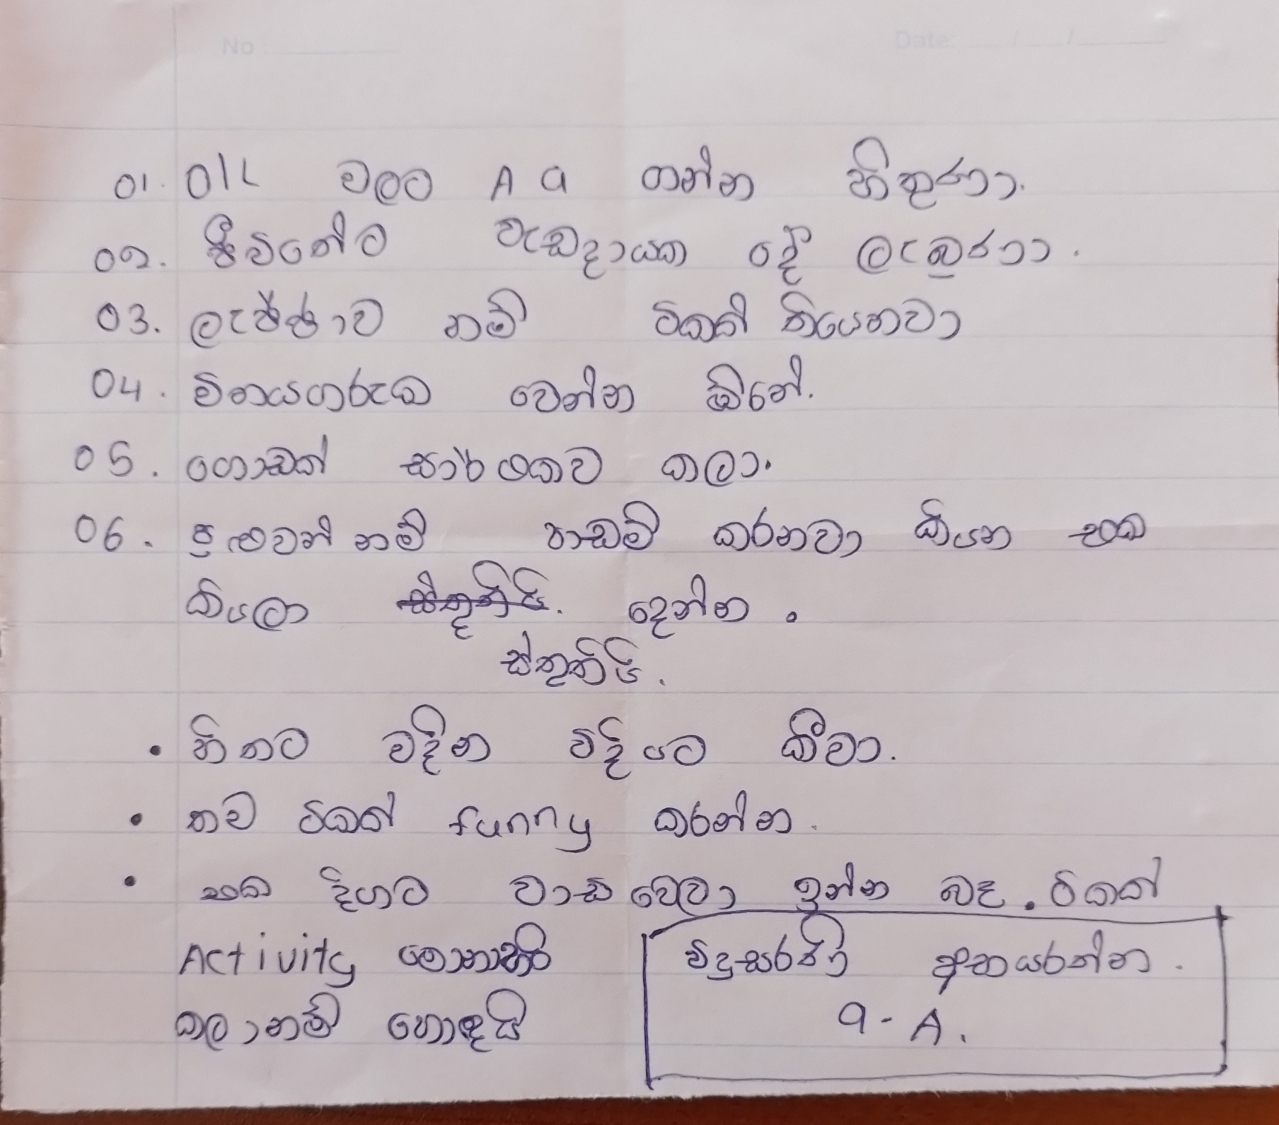 No Date / /
01. O/L වලට A 9 ගන්න හිතුණා.
02. ජීවිතේට වැඩදායක දේ ලැබුණා.
03. ලැජ්ජාව නම් ටිකක් තියෙනවා
04. විනයගරුක වෙන්න ඕනේ.
05. ගොඩක් සාර්ථකව කලා.
06. පුළුවන් නම් පාඩම් කරනවා කියන එක
කියලා ස්තූතියි. දෙන්න.
ස්තූතියි.
• හිතට වදින විදියට කීවා.
• තව ටිකක් funny කරන්න.
• එක දිගට වාඩිවෙලා ඉන්න බෑ. ටිකක්
Activity මොනාහරි
කලානම් හොඳයි
විදුසරණි අභයරත්න.
9-A.